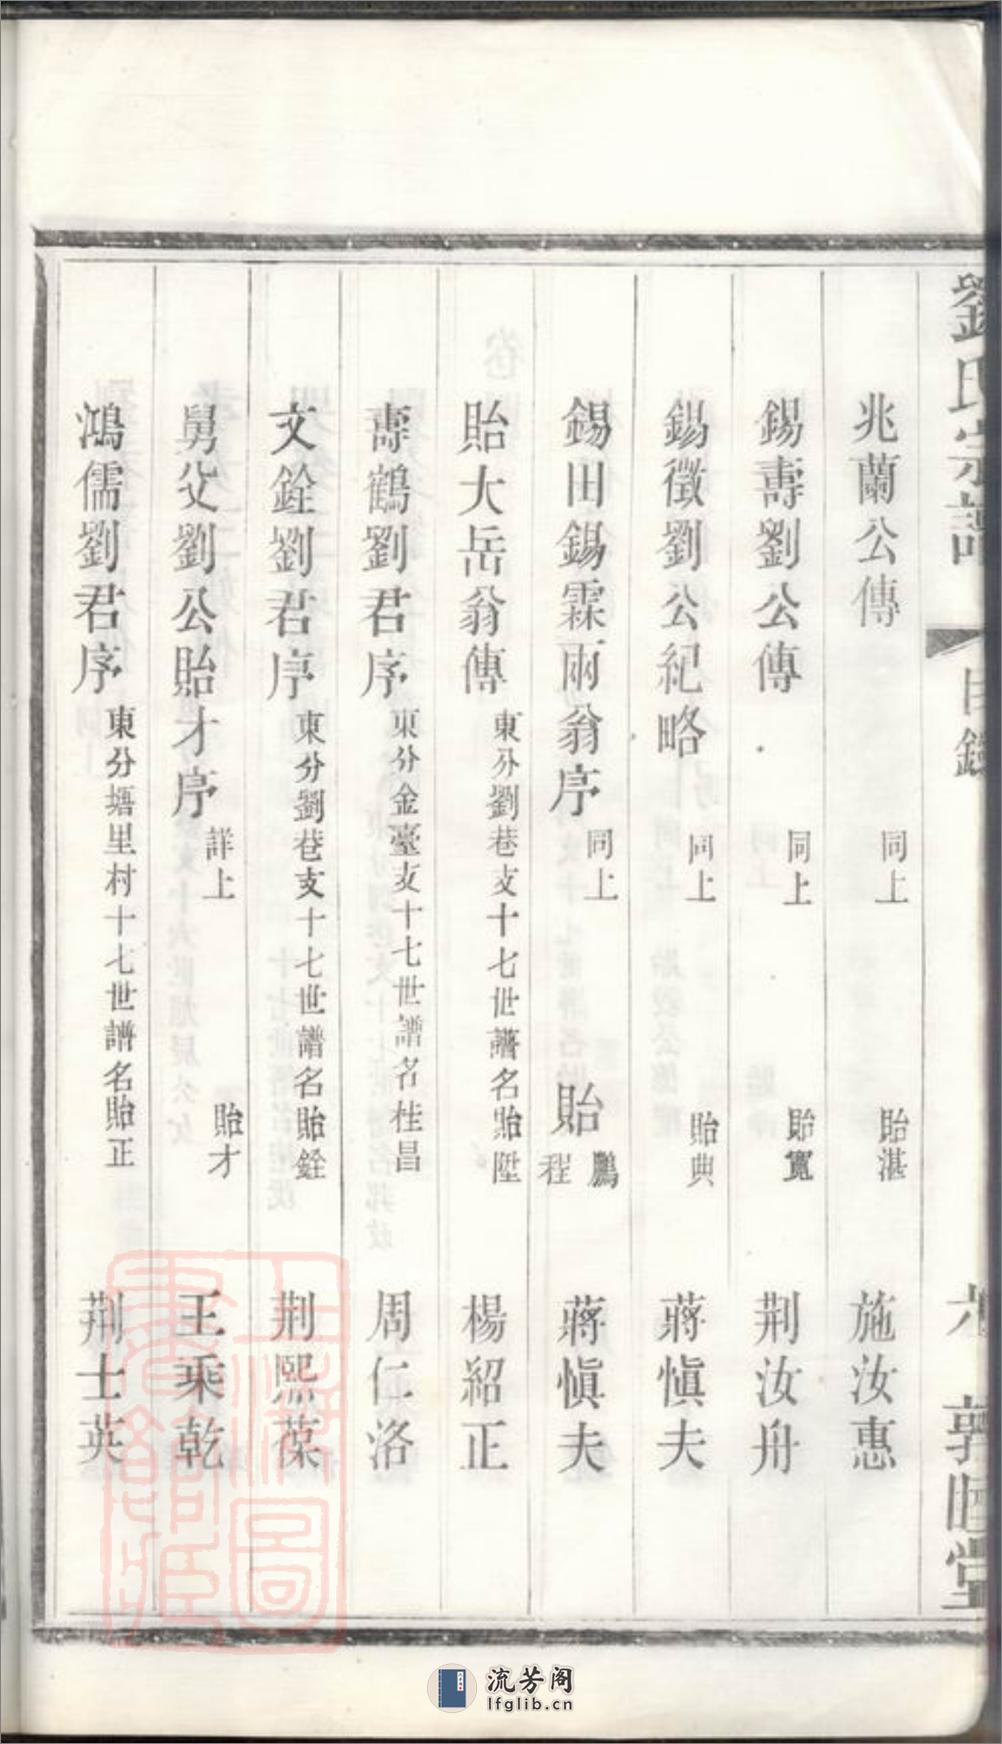 劉氏宗譜 目錄 六 敦睦堂
兆蘭公傳 同上 貽湛 施汝惠
錫壽劉公傳 同上 貽寬 荆汝舟
錫徵劉公紀略 同上 貽典 蔣愼夫
錫田錫霖兩翁序 同上 貽鵬程 蔣愼夫
貽大岳翁傳 東分劉巷支十七世譜名貽陞 楊紹正
壽鶴劉君序 東分金臺支十七世譜名桂昌 周仁洛
文銓劉君序 東分劉巷支十七世譜名貽銓 荆熙葆
舅父劉公貽才序 詳上 貽才 王乘乾
鴻儒劉君序 東分塘里村十七世譜名貽正 荆士英
上海圖書館藏
流芳阁
lfglib.cn